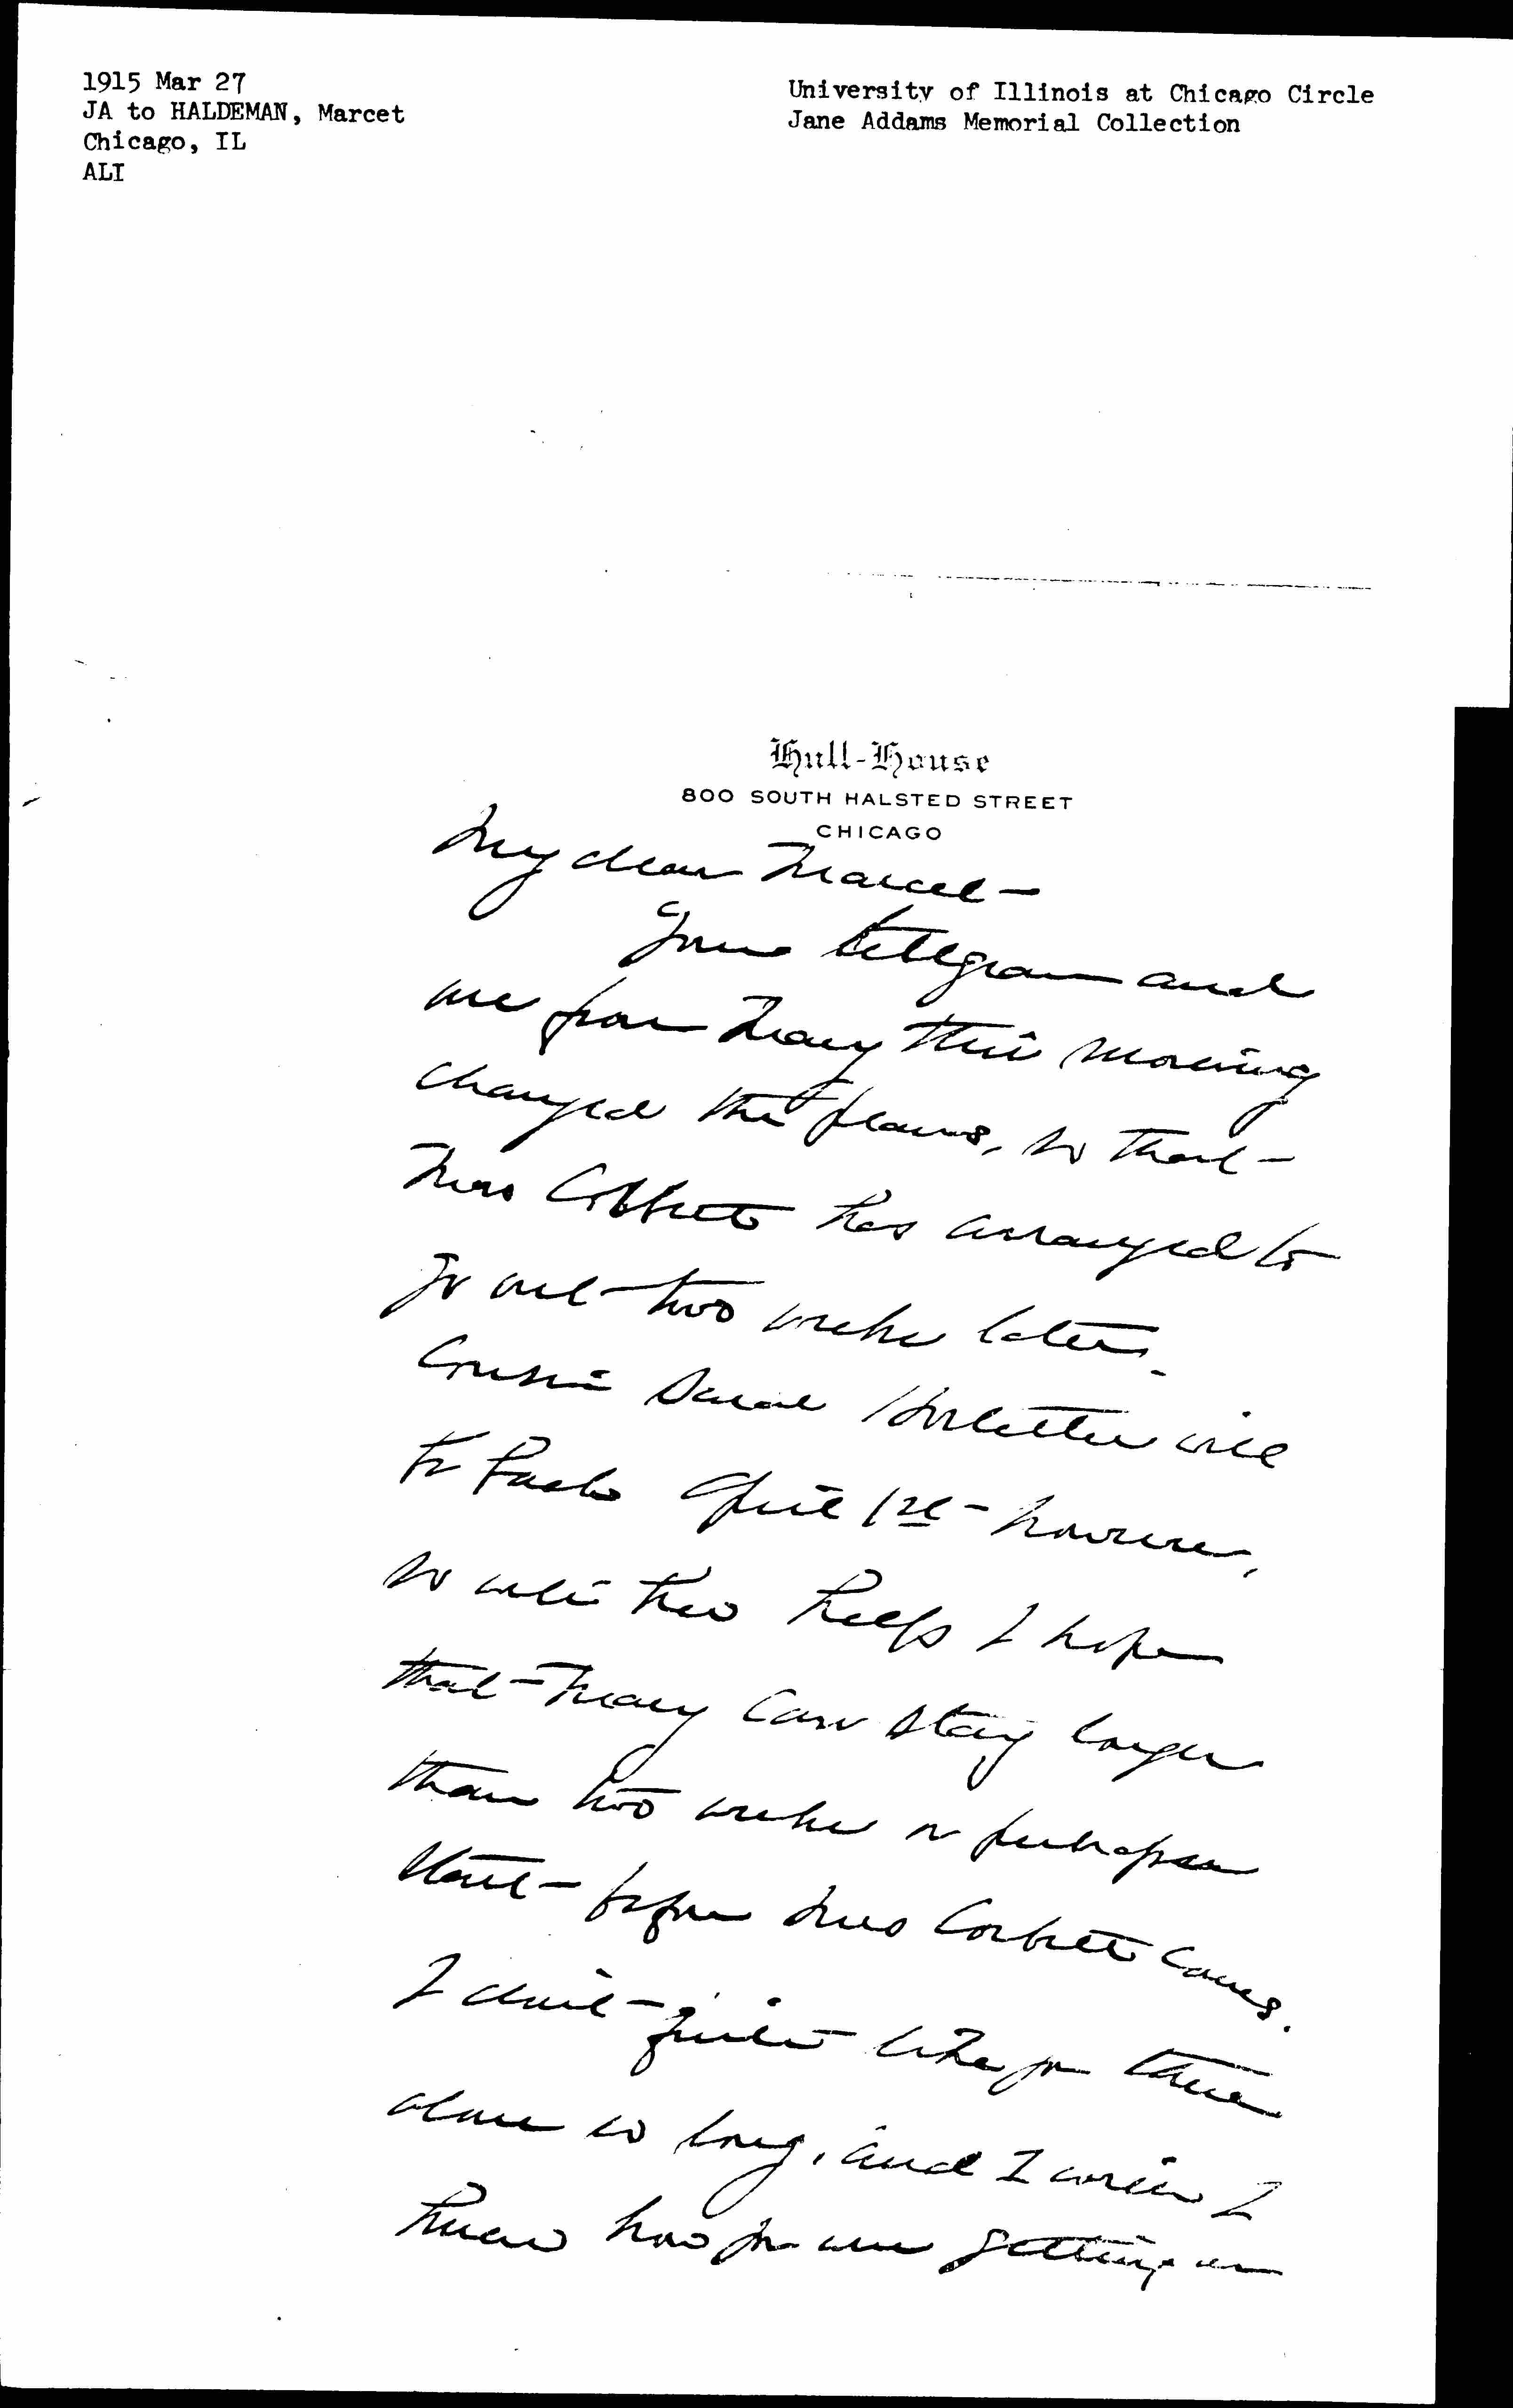 1915 Mar 27
JA to HALDEMAN, Marcet
Chicago, IL
ALI
University of Illinois at Chicago Circle
Jane Addams Memorial Collection
Hull-House
800 SOUTH HALSTED STREET
CHICAGO
My dear Marcet -
Your telegram and
one from Mary this morning
changed the plans, so that
Miss Corbett has arranged to
go out two weeks later.
Cousin Sarah Hostetter will
be back April 1st - however,
so with two helps I hope
that Mary can stay longer
than two weeks or perhaps
start before Miss Corbett comes.
I don't quite like you there
alone so long, and I wish I
knew how you are getting on